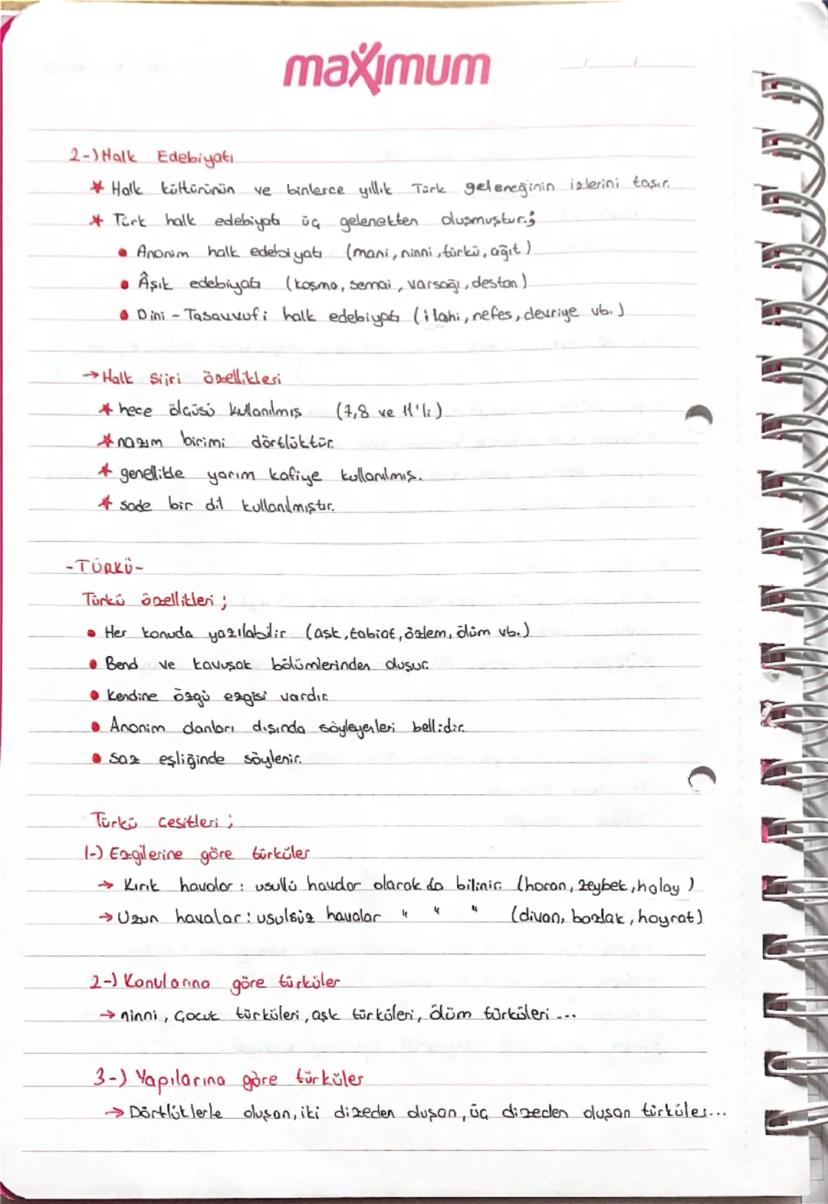 maximum
2-) Halk Edebiyatı
* Halk kültürünün ve binlerce yıllık Türk geleneğinin izlerini taşır.
* Türk halk edebiyatı üç gelenekten oluşmuştur.;
• Anonim halk edebiyatı (mani, ninni, türkü, ağıt)
• Âşık edebiyatı (koşma, semai, varsağı, destan)
• Dini - Tasavvufi halk edebiyatı (ilahi, nefes, devriye vb.)
→ Halk şiiri özellikleri
* hece ölçüsü kullanılmış (7,8 ve 11'li)
* nazım birimi dörtlüktür.
* genellikle yarım kafiye kullanılmış.
* sade bir dil kullanılmıştır.
- TÜRKÜ -
Türkü özellikleri ;
• Her konuda yazılabilir (aşk, tabiat, özlem, ölüm vb.)
• Bend ve kavuşak bölümlerinden oluşur.
• Kendine özgü ezgisi vardır.
• Anonim olanları dışında söyleyenleri bellidir.
• Saz eşliğinde söylenir.
Türkü çeşitleri ;
1-) Ezgilerine göre türküler
→ Kırık havalar : usullü havalar olarak da bilinir. (horon, zeybek, halay)
→ Uzun havalar : usulsüz havalar " " " (divan, bozlak, hoyrat)
2-) Konularına göre türküler
→ ninni, çocuk türküleri, aşk türküleri, ölüm türküleri ...
3-) Yapılarına göre türküler
→ Dörtlüklerle oluşan, iki dizeden oluşan, üç dizeden oluşan türküler...